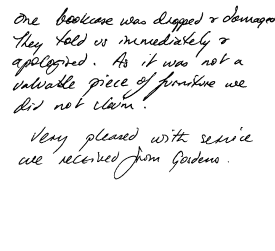 One bookcase was dropped & damaged
They told us immediately &
apologised. As it was not a
valuable piece of furniture we
did not claim.
Very pleased with service
we received from Gardens.